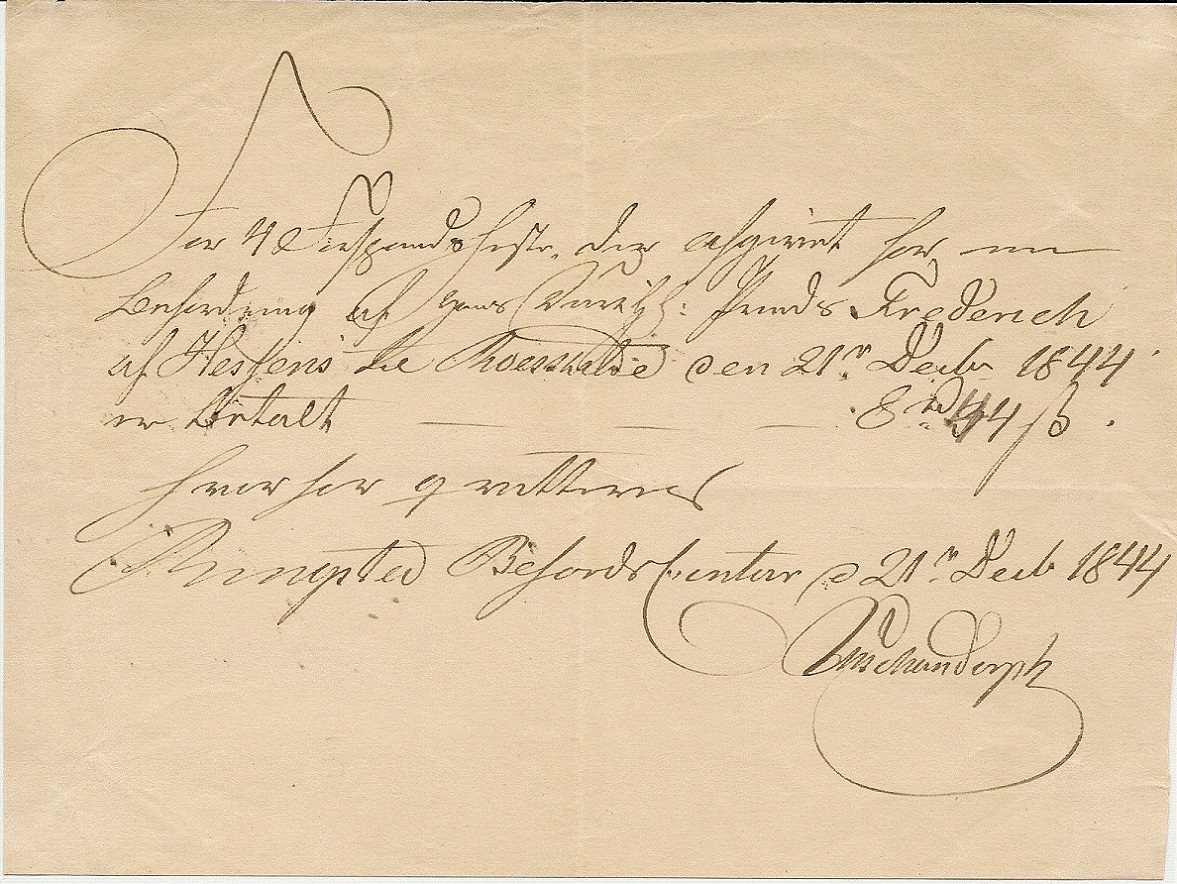 For 4 Forspands heste, der afgivet for en
Befordring af Hans Durchl: Prinds Frederich
af Hessens til Roeskilde den 21n Decbr 1844
er betalt — — — 8 rd 44 ß.
hvorfor qvitteres
Ringsted Befords Contoir d 21n Decb 1844